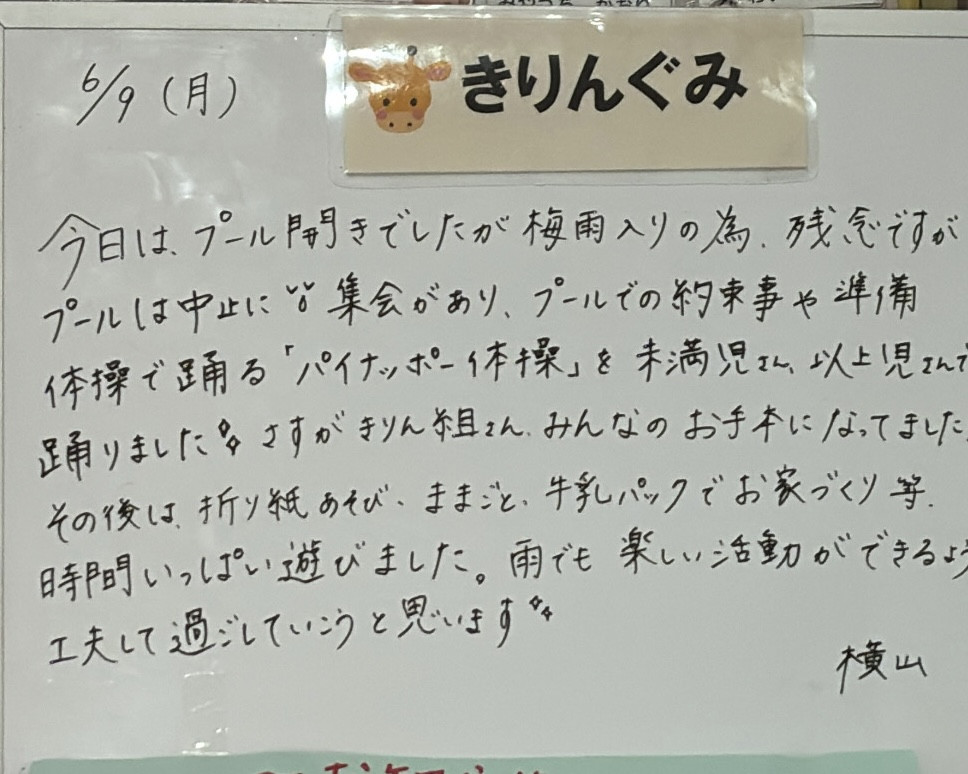 6/9 (月)
きりんぐみ
今日は、プール開きでしたが梅雨入りの為、残念ですが
プールは中止に 集会があり、プールでの約束事や準備
体操で踊る「パイナッポー体操」を未満児さん、以上児さんで
踊りました さすがきりん組さん、みんなのお手本になってました。
その後は、折り紙あそび、ままごと、牛乳パックでお家づくり等、
時間いっぱい遊びました。雨でも楽しい活動ができるよう
工夫して過ごしていこうと思います
横山